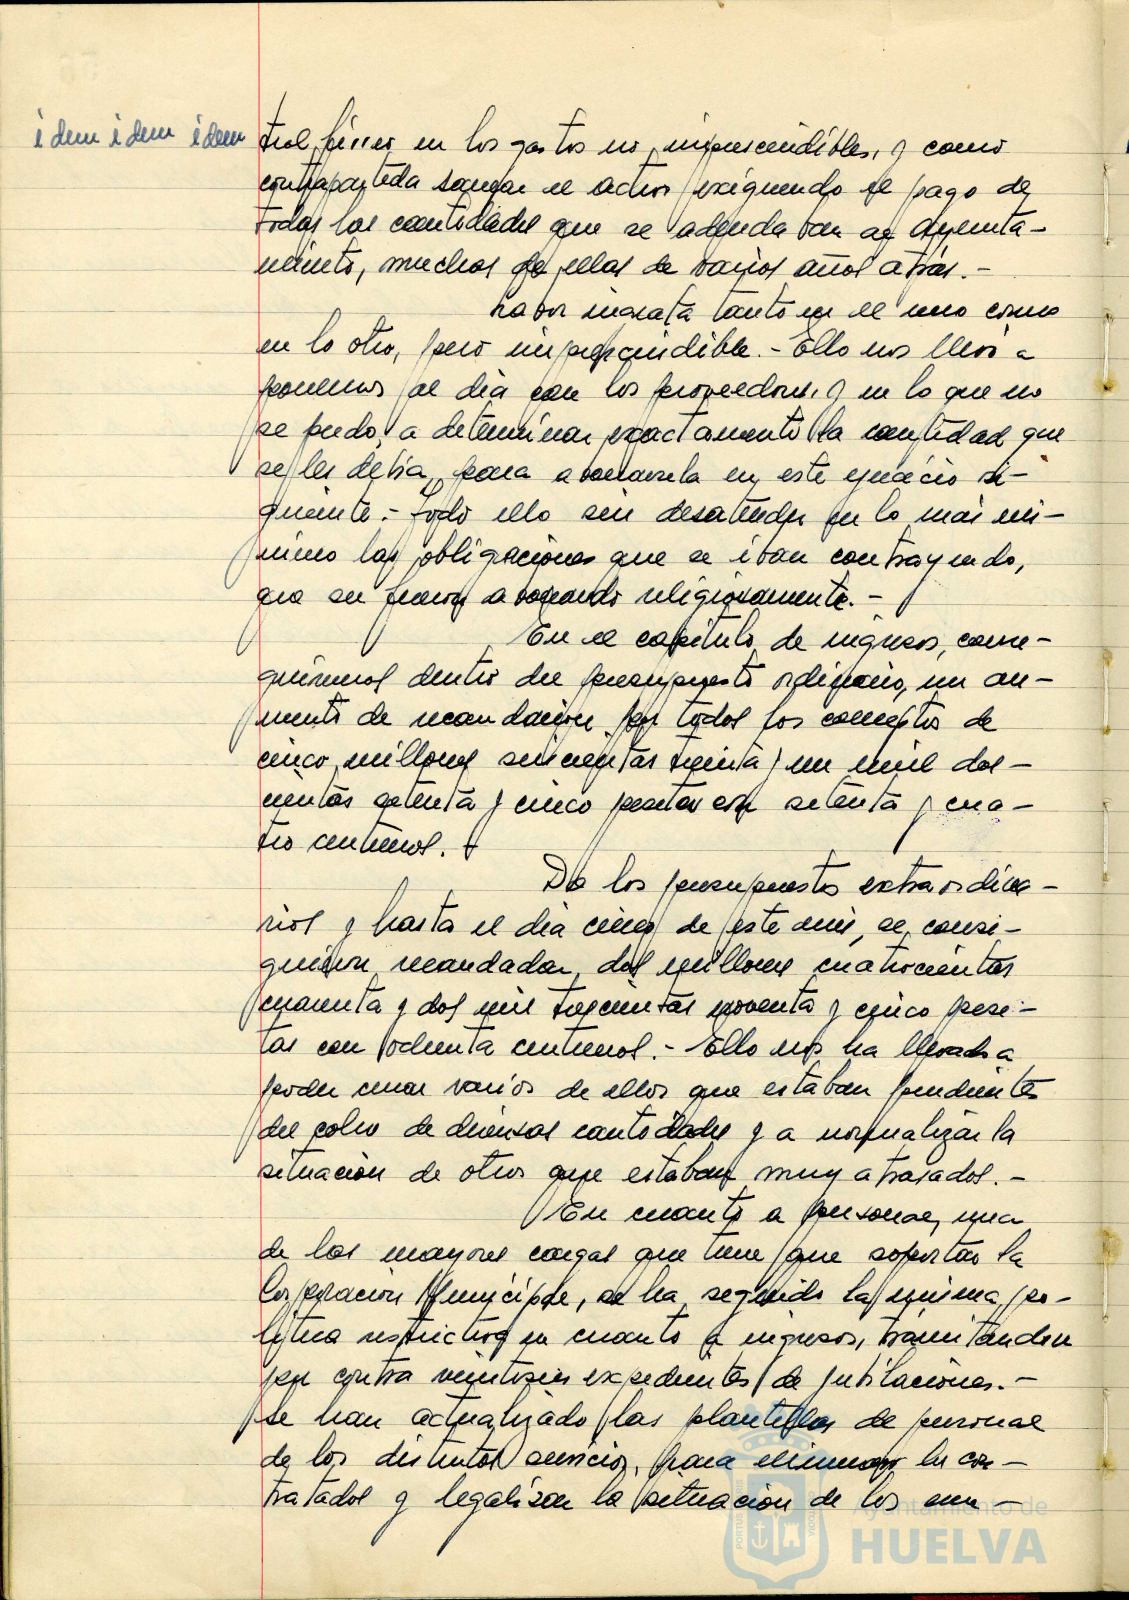 idem idem idem
trol férreo en los gastos no imprescindibles, y como
contrapartida sanear el activo exigiendo el pago de
todas las cantidades que se adeudaban al Ayunta-
miento, muchas de ellas de varios años atrás.-
Labor ingrata tanto en el uno como
en lo otro, pero imprescindible.- Ello nos llevó a
ponernos al día con los proveedores, y en lo que no
se pudo, a determinar exactamente la cantidad que
se les debía, para abonársela en este ejercicio si-
guiente.- Todo ello sin desatender en lo más mí-
nimo las obligaciones que se iban contrayendo,
que se fueron abonando religiosamente.-
En el capítulo de ingresos, conse-
guimos dentro del presupuesto ordinario, un au-
mento de recaudación por todos los conceptos de
cinco millones seiscientas treinta y un mil dos-
cientas setenta y cinco pesetas con setenta y cua-
tro céntimos.
De los presupuestos extraordina-
rios y hasta el día cinco de este mes, se consi-
guieron recaudar dos millones cuatrocientas
cuarenta y dos mil trescientas noventa y cinco pese-
tas con ochenta céntimos.- Ello nos ha llevado a
poder cerrar varios de ellos que estaban pendientes
del cobro de diversas cantidades y a normalizar la
situación de otros que estaban muy atrasados.-
En cuanto a personal, una
de las mayores cargas que tiene que soportar la
Corporación Municipal, se ha seguido la misma po-
lítica restrictiva en cuanto a ingresos, tramitándose
por contra veintiseis expedientes de jubilaciones.-
Se han actualizado las plantillas de personal
de los distintos servicios, para eliminar los con-
tratados y legalizar la situación de los
Ayuntamiento de
HUELVA